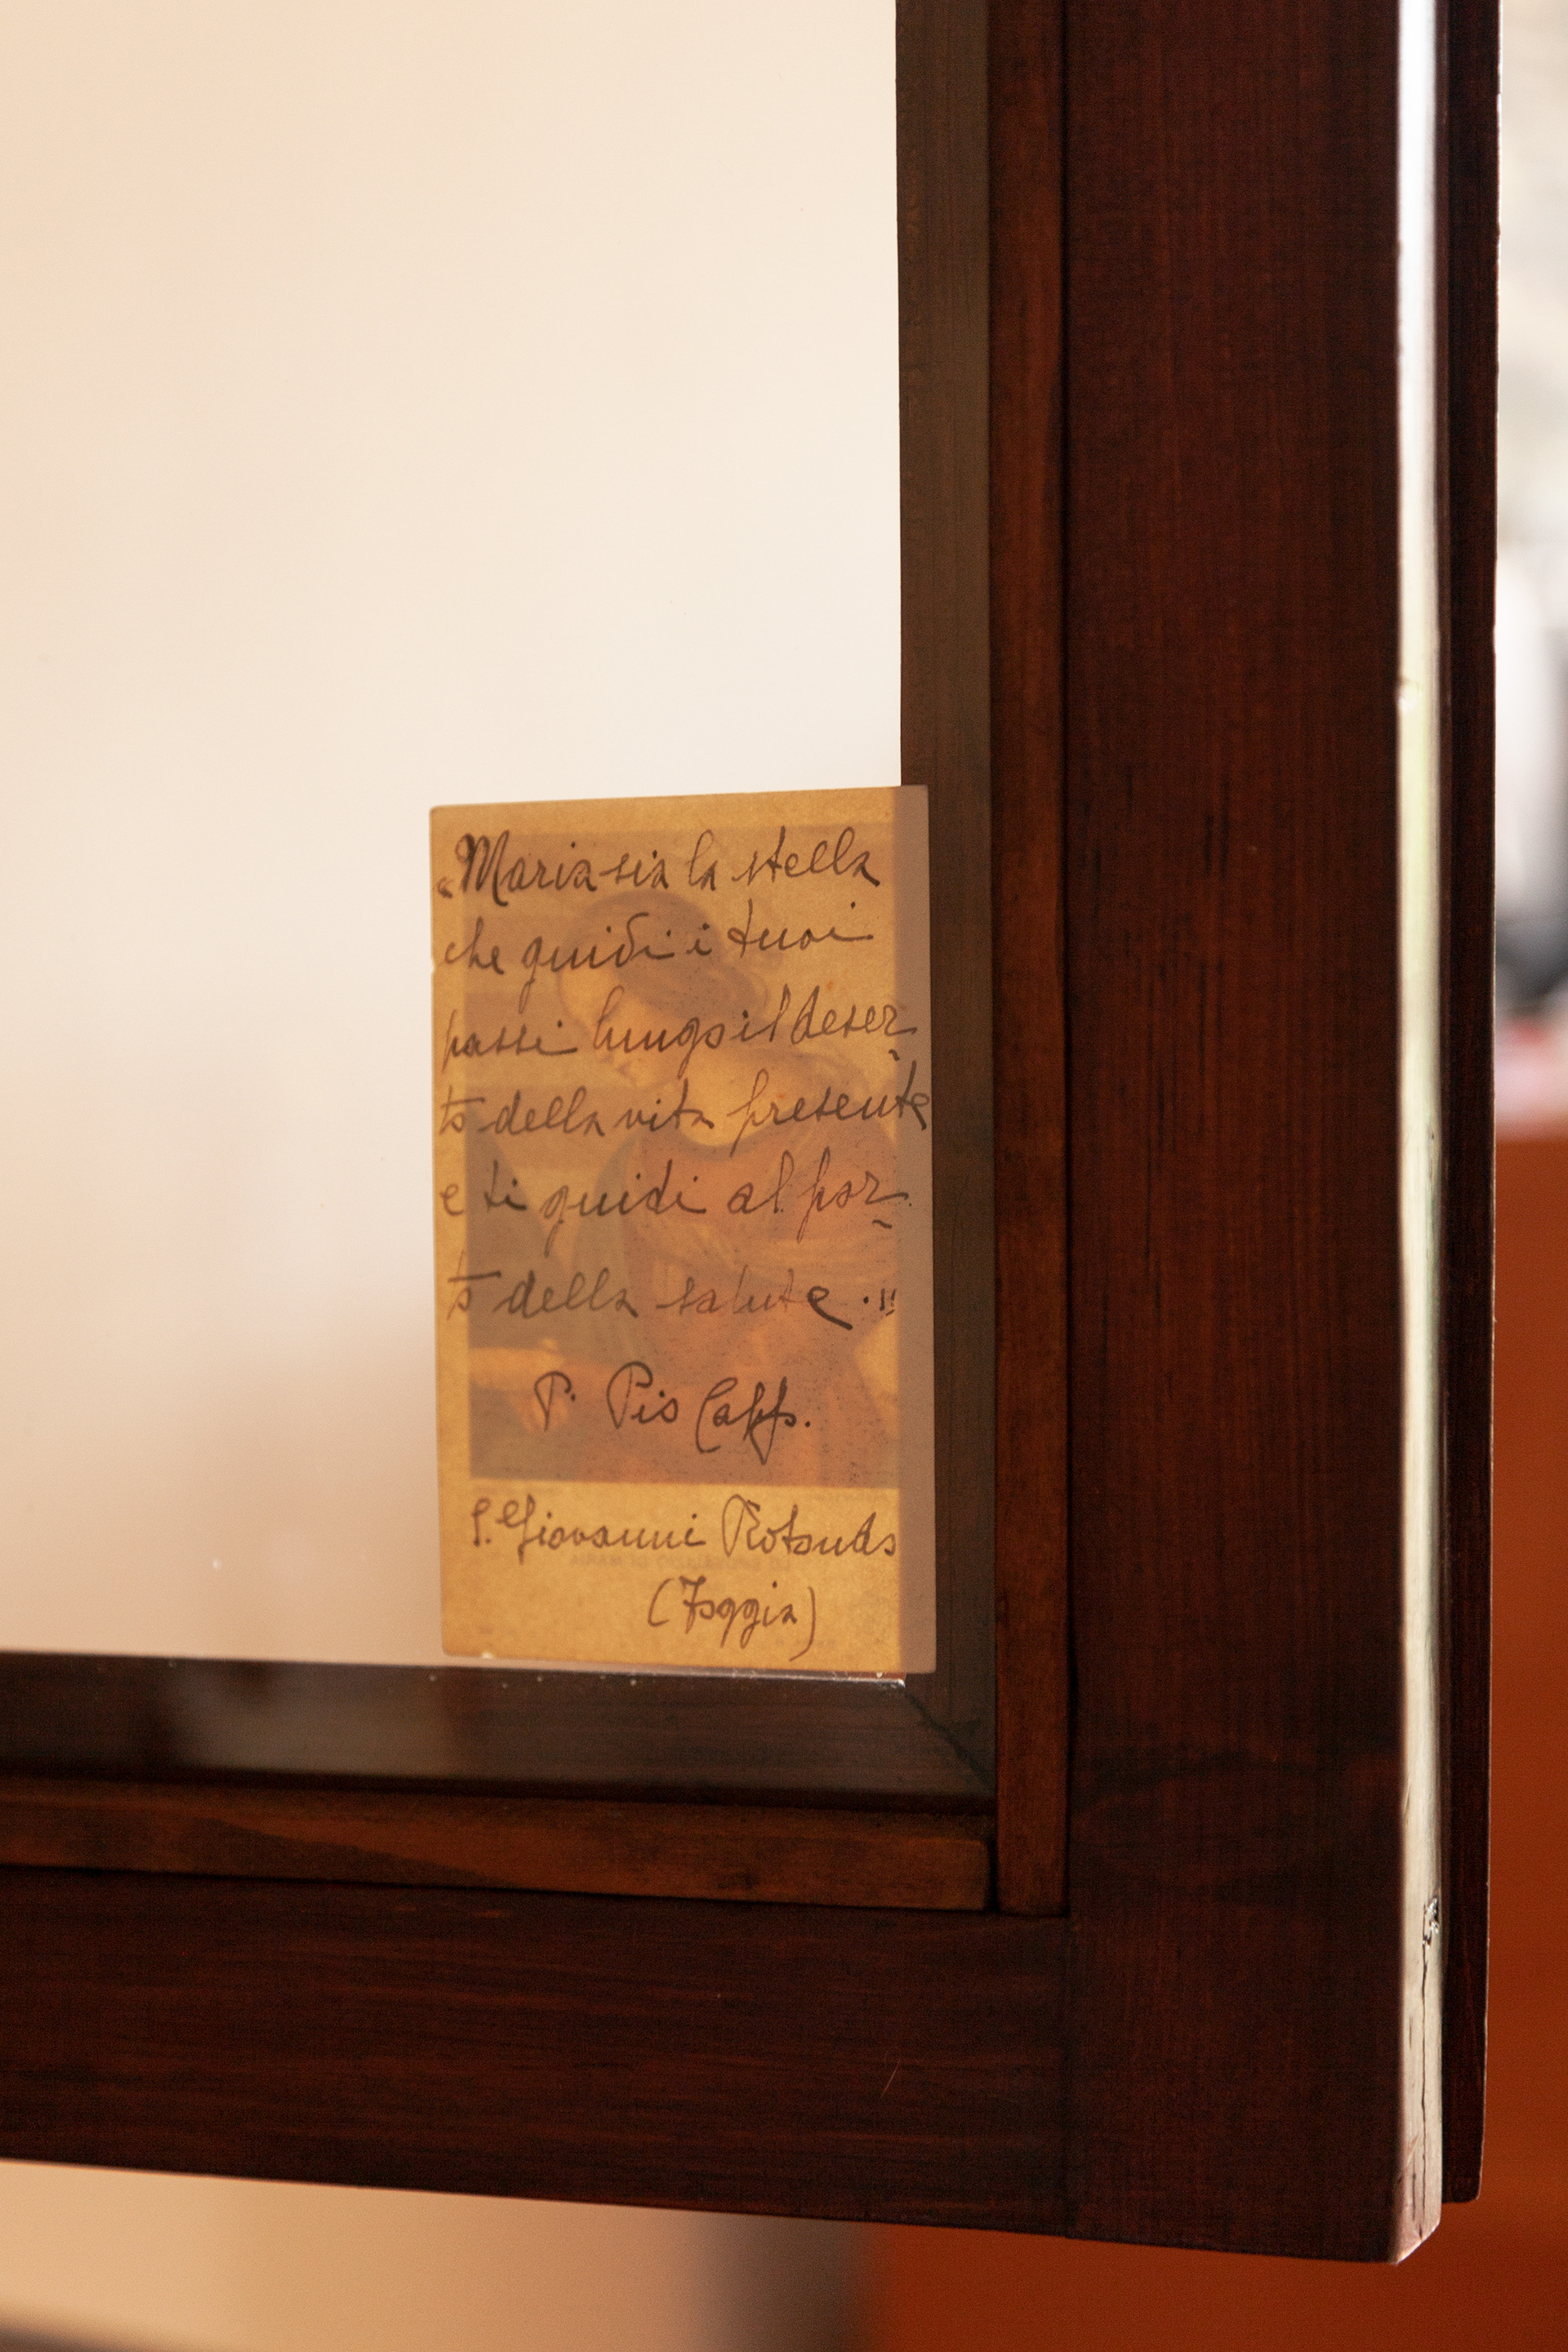 "Maria sia la stella
che guidi i tuoi
passi lungo il deser-
to della vita presente
e ti guidi al por-
to della salute."
P. Pio Capp.
S. Giovanni Rotondo
(Foggia)